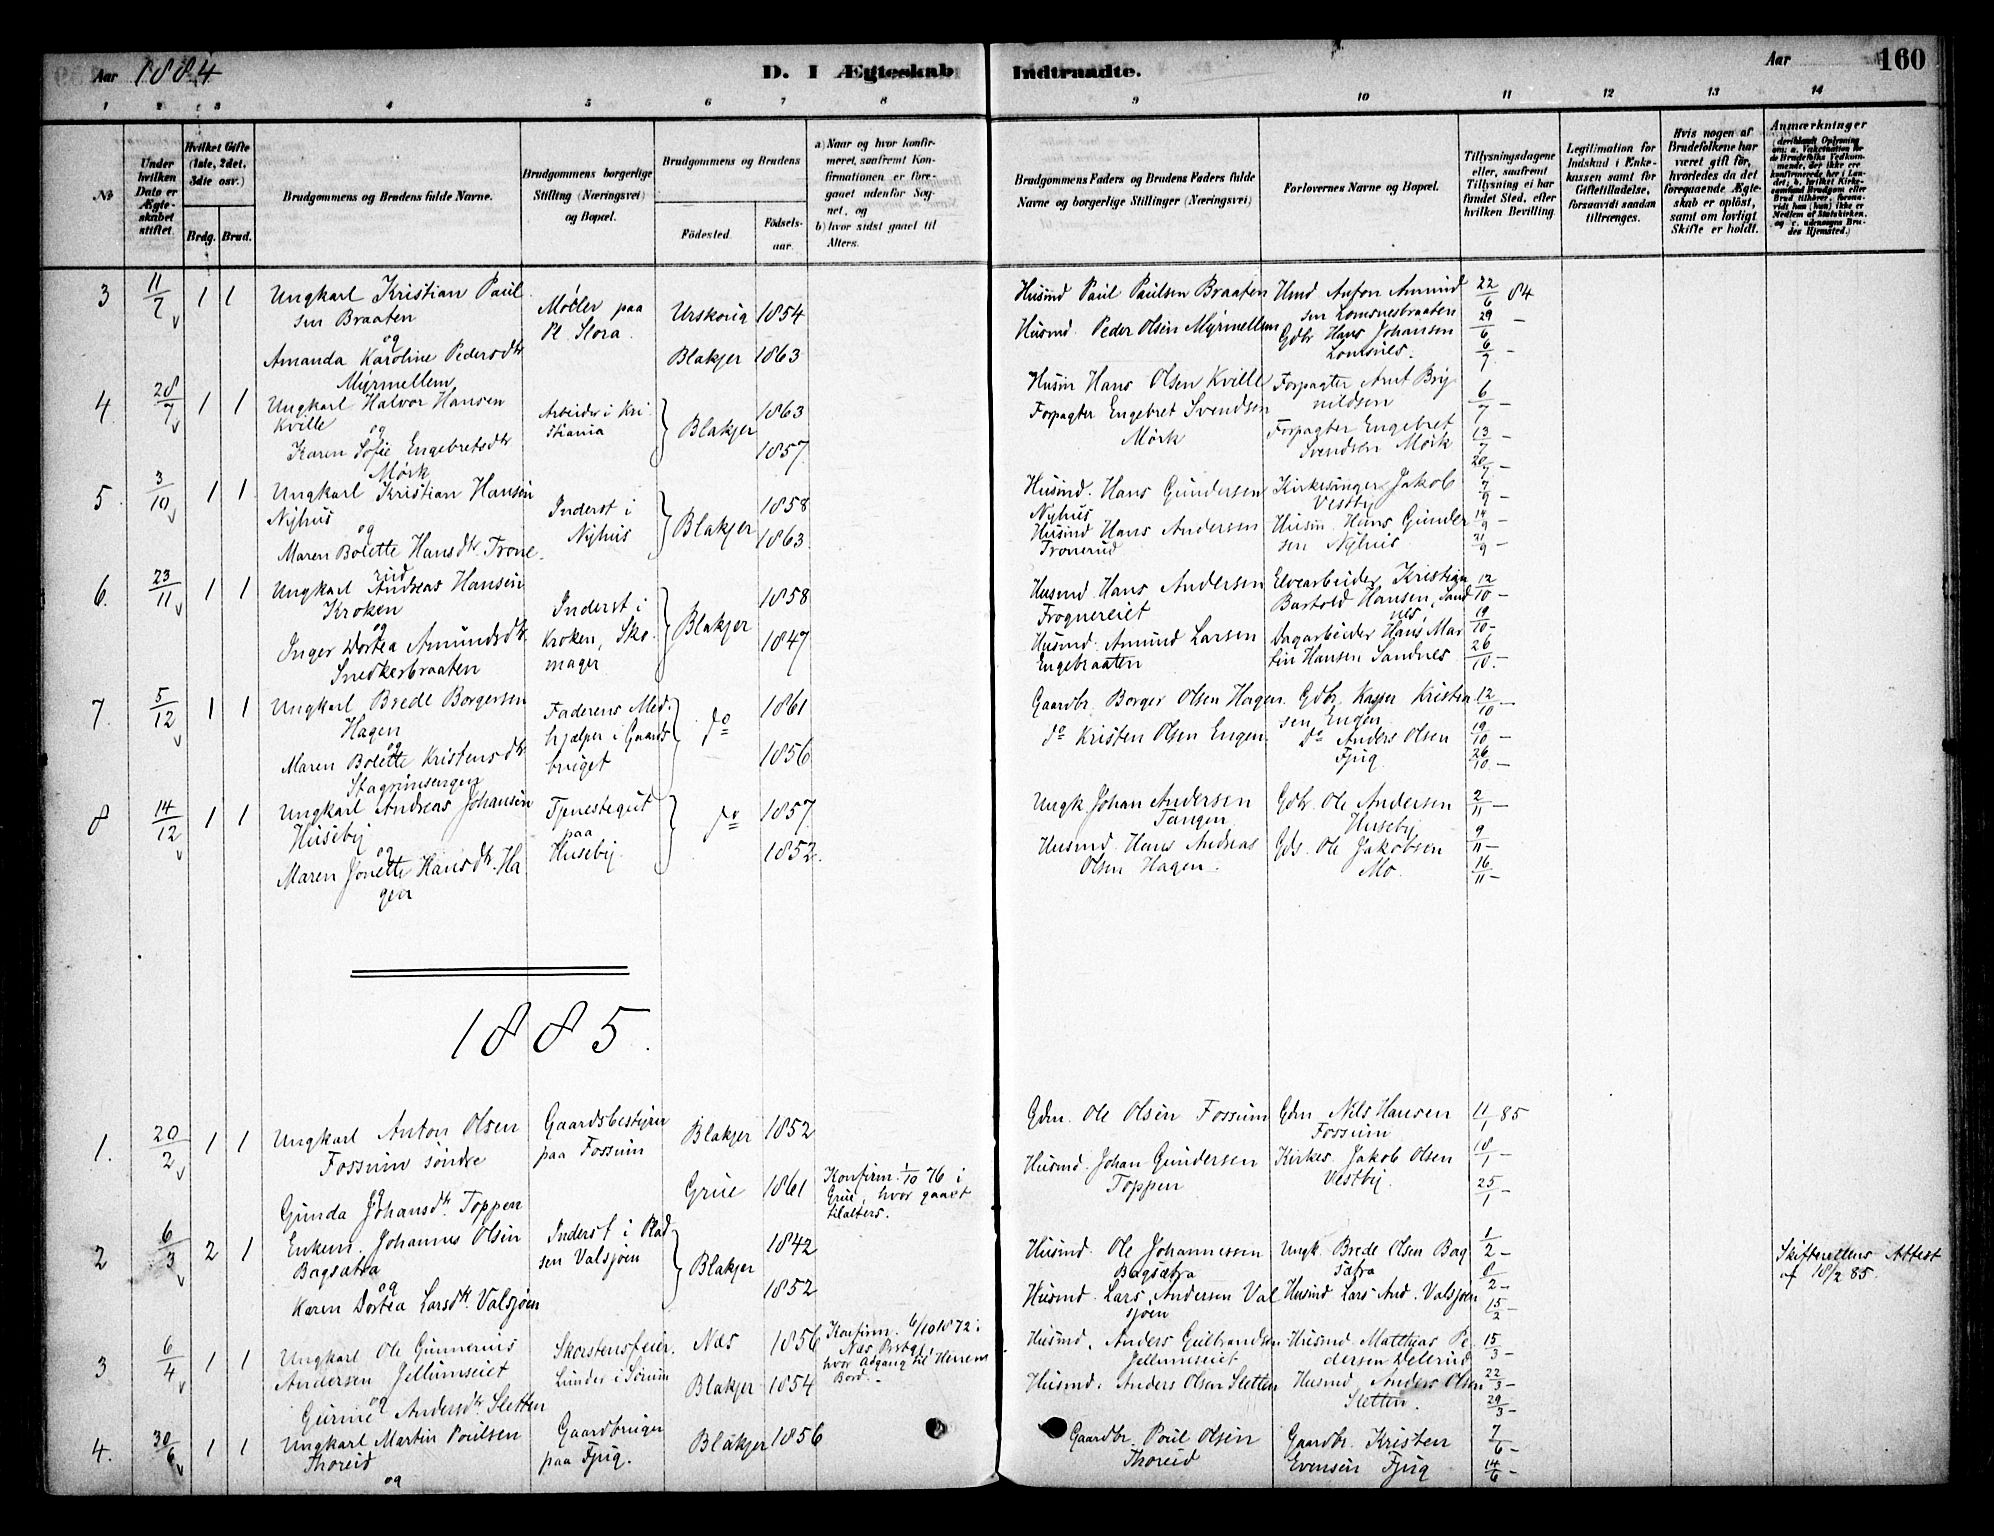 Aar 1884
D. I Ægteskab Indtraadte.
Aar 160
1 2 3 4 5 6 7 8 9 10 11 12 13 14
No
Under hvilken Dato er Ægteskabet stiftet.
Hvilket Gifte (1ste, 2det, 3die osv.)
Brdg. Brud.
Brudgommens og Brudens fulde Navne.
Brudgommens borgerlige Stilling (Næringsvei) og Bopæl.
Brudgommens og Brudens
Födested. Födselsaar.
a) Naar og hvor konfirmeret, saafremt Konfirmationen er foregaaet udenfor Sognet, og
b) hvor sidst gaaet til Alters.
Brudgommens Faders og Brudens Faders fulde Navne og borgerlige Stillinger (Næringsvei)
Forlovernes Navne og Bopæl.
Tillysningsdagene eller, saafremt Tillysning ei har fundet Sted, efter hvilken Bevilling.
Legitimation for Indskud i Enkekassen samt for Giftetilladelse, forsaavidt saadan tiltrænges.
Hvis nogen af Brudefolkene har været gift för, hvorledes da det foregaaende Ægteskab er oplöst, samt om lovligt Skifte er holdt.
Anmærkninger
3 11/7 1 1 Ungkarl Kristian Paulsen Braaten og Amanda Karoline Pedersdtr Myrmellem
Møller paa Pl. Slora.
Urskoug 1854
Blakjer 1863
Husmd Paul Paulsen Braaten
Husmd. Peder Olsen Myrmellem
Husmd Anton Amundsen Lomsnesbraaten
Gdbr Hans Johansen Lomsnes.
22/6 84 29/6 - 6/7 -
4 28/7 1 1 Ungkarl Halvor Hansen Kville og Karen Sofie Engebretsdtr Mørk
Arbeider i Kristiania
Blakjer 1863 1857
Husm Hans Olsen Kville
Forpagter Engebret Svendsen Mørk
Forpagter Arnt Brynildsen
Forpagter Engebret Svendsen Mørk
6/7 - 13/7 - 20/7 -
5. 3/10 1 1 Ungkarl Kristian Hansen Nyhus og Maren Bolette Hansdtr. Tronerud
Inderst i Nyhus
Blakjer 1858 1863
Husmd. Hans Gundersen Nyhus
Husmd Hans Andersen Tronerud
Kirkesanger Jakob Vestby
Husm. Hans Gundersen Nyhus
7/9 - 14/9 - 21/9 -
6. 23/11 1 1 Ungkarl Andreas Hansen Kroken og Inger Dortea Amundsdtr. Snedkerbraaten
Inderst i Kroken, Skomager
Blakjer 1858 1847
Husmd. Hans Andersen Frognereiet
Husmd. Amund Larsen Engebraaten
Elvearbeider Kristian Bartold Hansen, Sandnes,
Dagarbeider Hans Martin Hansen Sandnes
12/10 - 19/10 - 26/10 -
7. 5/12 1 1 Ungkarl Brede Borgersen Hagen og Maren Bolette Kristensdtr. Stagrimsengen
Faderens Medhjælper i Gaardsbruget
do 1861 1856
Gaardbr. Borger Olsen Hagen.
do Kristen Olsen Engen.
Gdbr. Kasper Kristiansen Engen
do Anders Olsen Fjug
12/10 - 19/10 - 26/10 -
8 14/12 1 1 Ungkarl Andreas Johansen Huseby og Maren Jonette Hansdtr. Hagen
Tjenestegut paa Huseby.
do 1857 1852.
Ungk. Johan Andersen Tangen
Husmd. Hans Andreas Olsen Hagen.
Gdbr. Ole Andersen Huseby
Gdb. Ole Jakobsen Mo.
2/11 - 9/11 - 16/11 -
1885.
1. 20/2 1 1 Ungkarl Anton Olsen Fossum søndre og Gunda Johansdtr. Toppen
Gaardsbestyrer paa Fossum
Blakjer 1852
Grue 1861
Konfirm. 1/10 76 i Grue, hvor gaaet tilalters.
Gdm. Ole Olsen Fossum
Husmd. Johan Gundersen Toppen
Gdm. Nils Hansen Fossum
Kirkes. Jakob Olsen Vestby.
11/1 85 18/1 - 25/1 -
2 6/3 2 1 Enkem. Johannes Olsen Bagsætra og Karen Dortea Larsdtr. Valsjøen
Inderst i Pladsen Valsjøen
Blakjer 1842 1852
Husmd. Ole Johannessen Bagsætra
Husmd. Lars Andersen Valsjøen
Ungk. Brede Olsen Bagsætra
Husmd Lars And. Valsjøen
1/2 - 8/2 - 15/2 -
Skifterettens Attest af 18/2 85.
3 6/4 1 1 Ungkarl Ole Gunnerius Andersen Jellumseiet og Gurine Andersdtr. Sletten
Skorstensfeier. Lunder i Sørum
Næs 1856
Blakjer 1854
Konfirm. 6/10 1872 i Næs Prstgj hvor Adgang til Herrens Bord.-
Husmd. Anders Gulbrandsen Jellumseiet
Husmd. Anders Olsen Sletten
Husmd Matthias Pedersen Delerud
Husmd Anders Olsen Sletten.
15/3 - 22/3 - 29/3 -
4. 30/6 1 1 Ungkarl Martin Poulsen Thoreid og
Gaardbruger paa Fjug.
Blakjer 1856
Gaardbr. Poul Olsen Thoreid
Gaardbr. Kristen Evensen Fjug
7/6 - 14/6 -